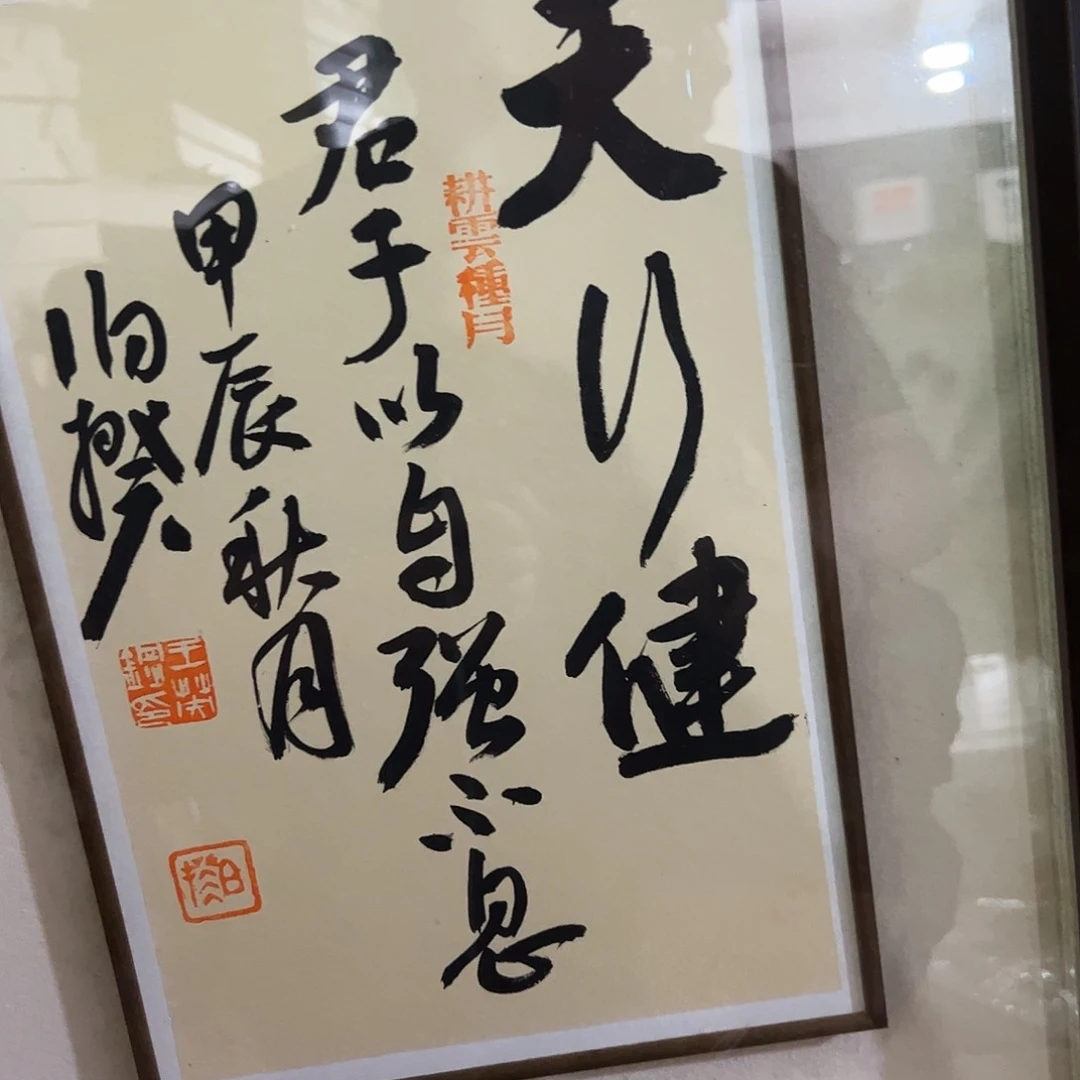 天行健
君子以自强不息
甲辰秋月
伯揆
耕雲種月
伯揆